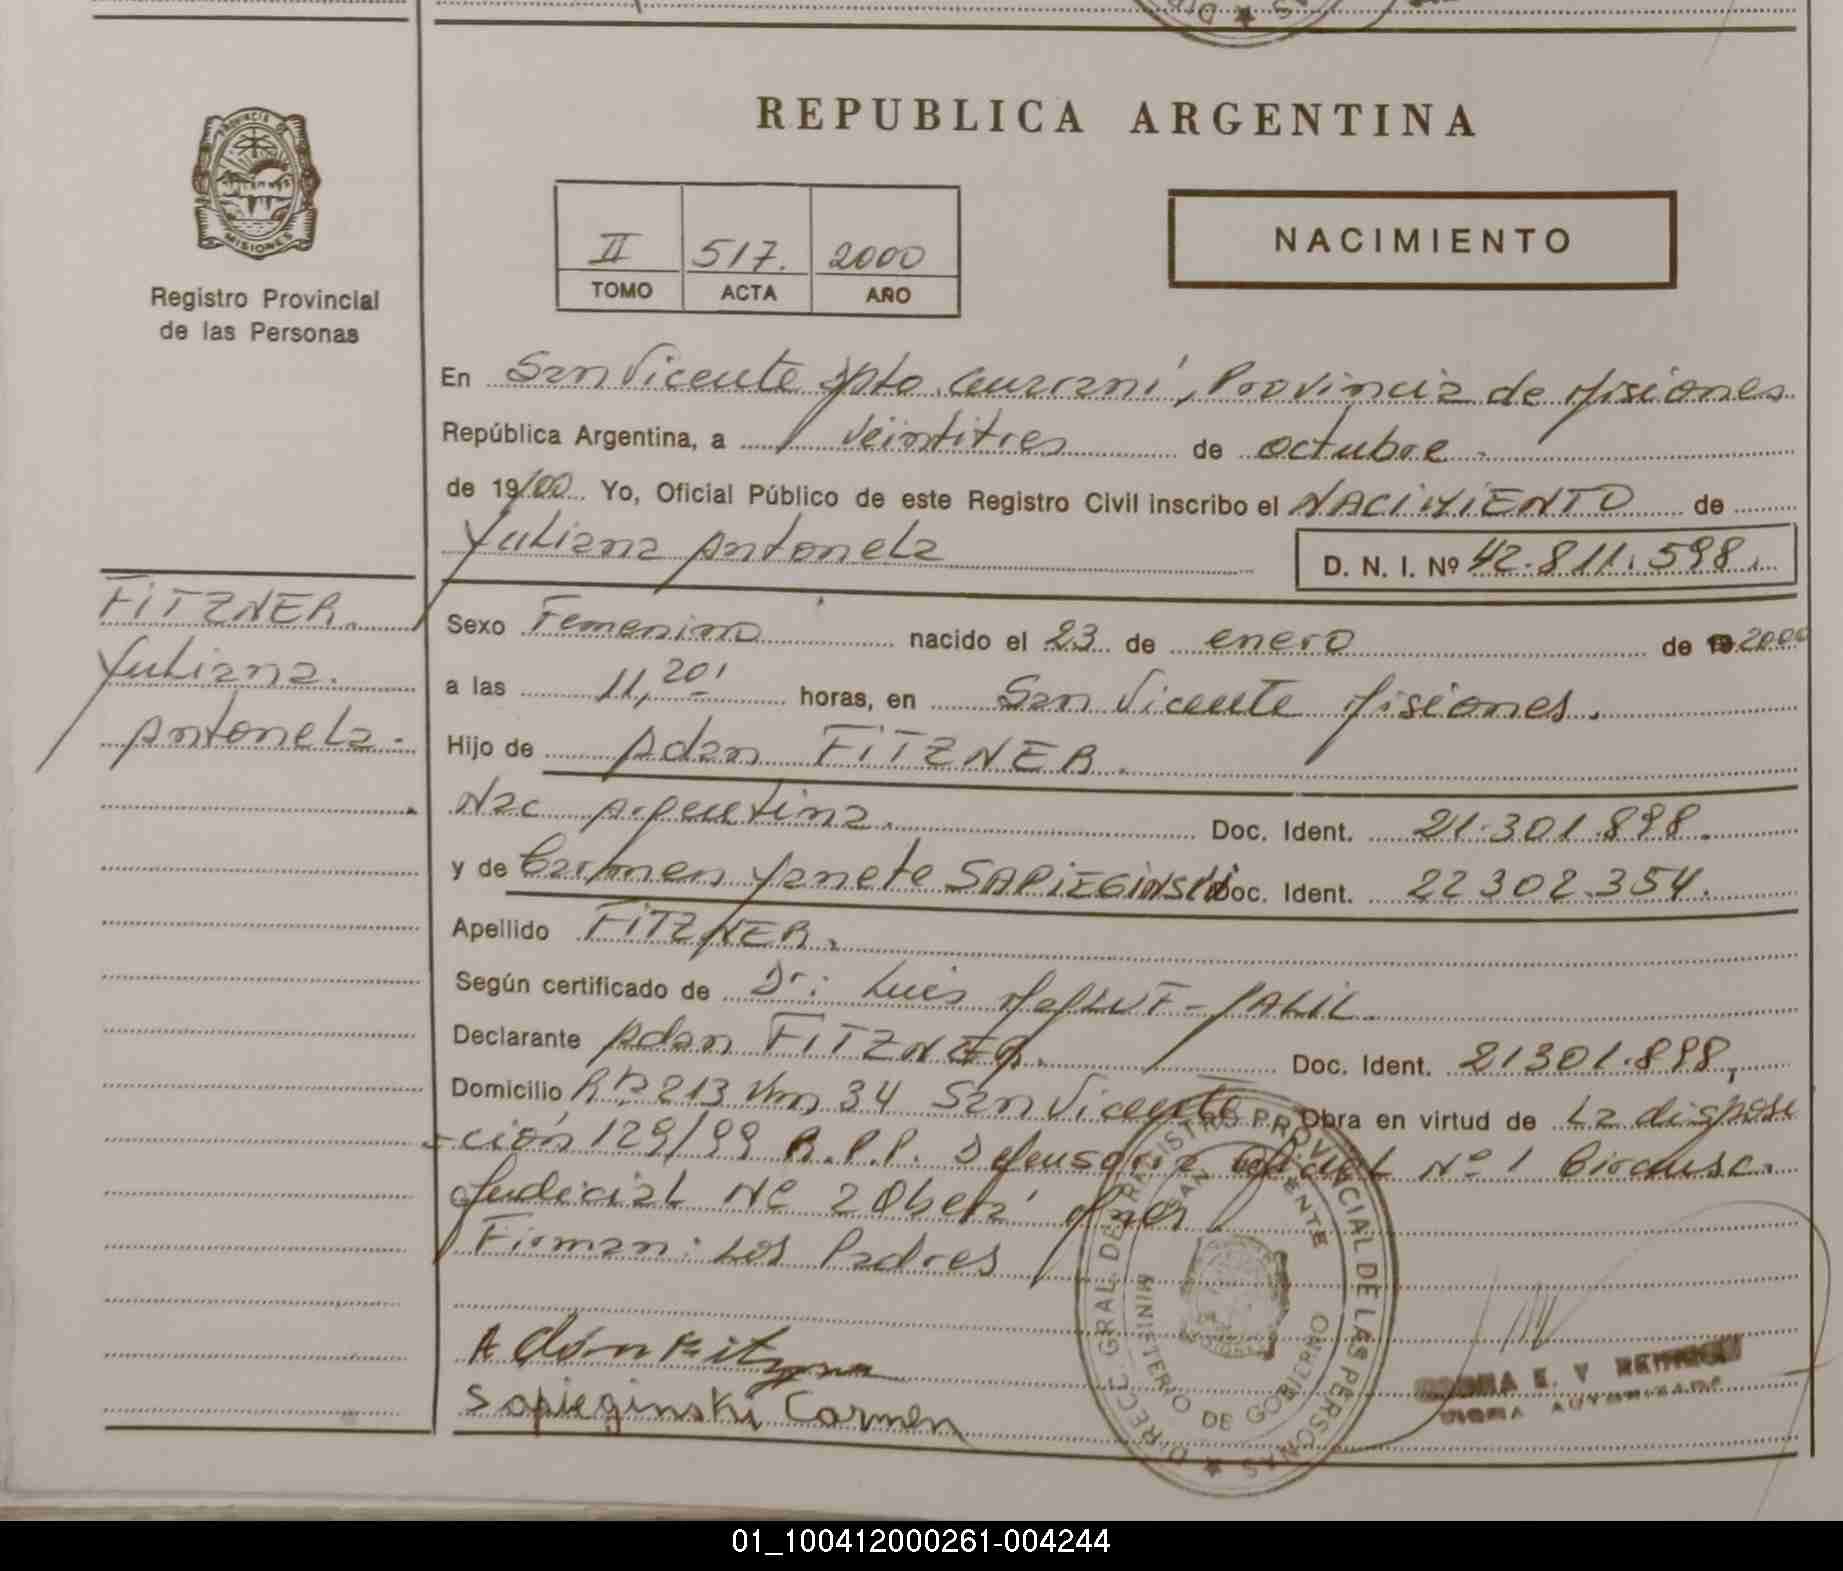 REPUBLICA ARGENTINA
PROVINCIA DE
MISIONES
Registro Provincial
de las Personas
NACIMIENTO
II 517. 2000
TOMO ACTA AÑO
En San Vicente Dpto. Guaraní, Provincia de Misiones
República Argentina, a veintitres de octubre.
de 19/00 Yo, Oficial Público de este Registro Civil inscribo el NACIMIENTO de
Yuliana Antonela D. N. I. Nº 42.811.598.
FITZNER.
Yuliana.
Antonela.
Sexo Femenino nacido el 23 de enero de 19 2000
a las 11,20' horas, en San Vicente Misiones.
Hijo de Adan FITZNER.
Nac Argentina. Doc. Ident. 21.301.898.
y de Carmen Yanete SAPIEGINSKI Doc. Ident. 22302.354.
Apellido FITZNER.
Según certificado de Dr: Luis JALIL.
Declarante Adan FITZNER. Doc. Ident. 21301.898,
Domicilio R.P. 213 Km 34 San Vicente Obra en virtud de La disposi
-ción 129/99 R.P.P. Defensoria Oficial Nº 1 Circunsc.
Judicial Nº 2 Oberá Mnes
Firman: Los Padres
Adán Fitzner
Sapieginski Carmen
DIRECC. GRAL. DEL REGISTRO PROVINCIAL DE LAS PERSONAS
SAN VICENTE
MINISTERIO DE GOBIERNO
E. V
01_100412000261-004244